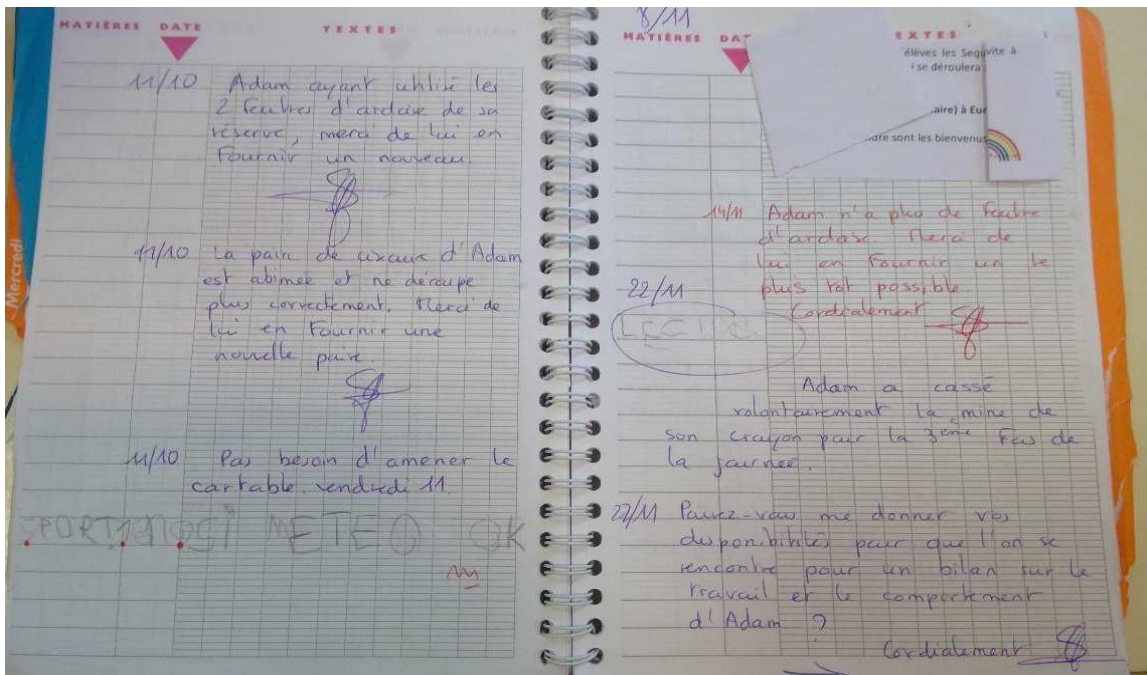 MATIÈRES DATE TEXTES
11/10 Adam ayant utilisé les
2 feutres d'ardoise de sa
réserve, merci de lui en
Fournir un nouveau.
11/10 La paire de ciseaux d'Adam
est abimée et ne découpe
plus correctement. Merci de
lui en Fournir une
nouvelle paire.
11/10 Pas besoin d'amener le
cartable vendredi 11.
SPORT SI METEO OK
Mercredi
8/11
MATIÈRES DAT EXTES
élèves les
se déroulera
aire) à
sont les bienvenus
14/11 Adam n'a plus de Feutre
d'ardoise. Merci de
lui en Fournir un le
plus tot possible.
Cordialement
22/11
Adam a cassé
volontairement la mine de
son crayon pour la 3ème Fois de
la journée.
27/11 Pouvez-vous me donner vos
disponibilités pour que l'on se
rencontre pour un bilan sur le
travail et le comportement
d'Adam ?
Cordialement